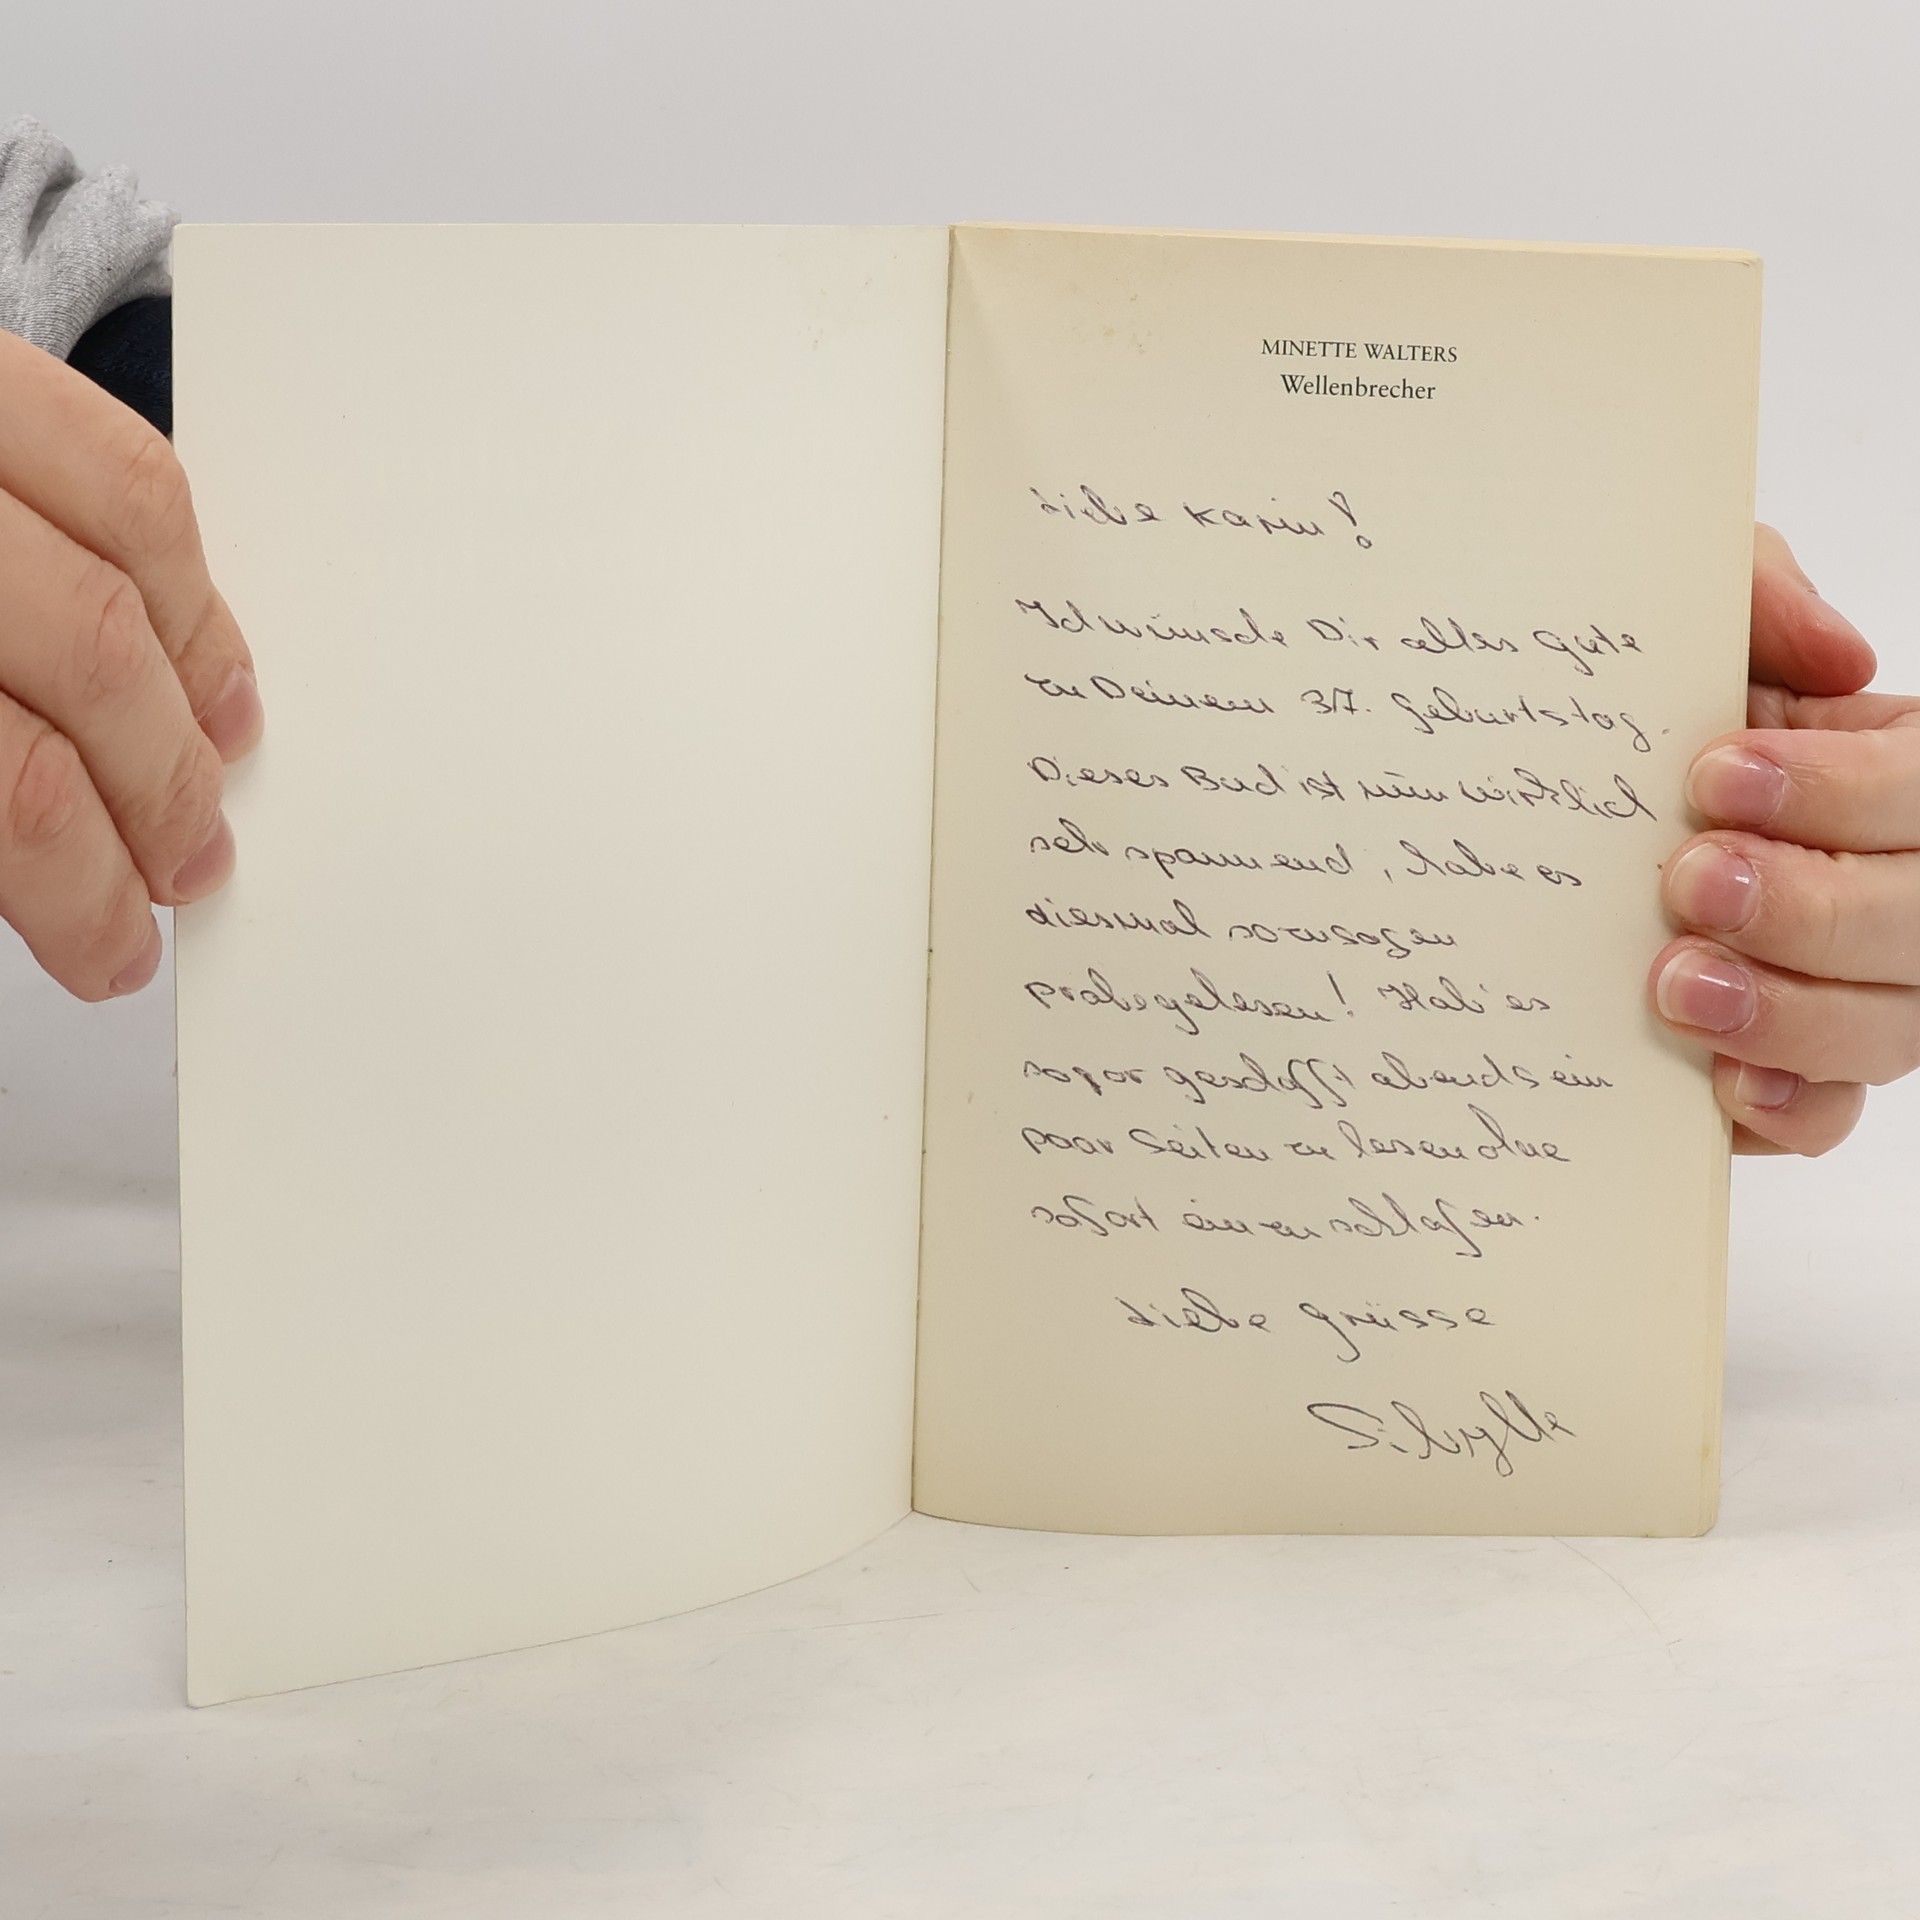 MINETTE WALTERS
Wellenbrecher
Liebe Karin!
Ich wünsche Dir alles Gute
zu Deinem 37. Geburtstag.
Dieses Buch ist nun wirklich
sehr spannend, habe es
diesmal sozusagen
probegelesen! Hab' es
sogar geschafft abends ein
paar Seiten zu lesen ohne
sofort einzuschlafen.
Liebe Grüsse
Sibylle